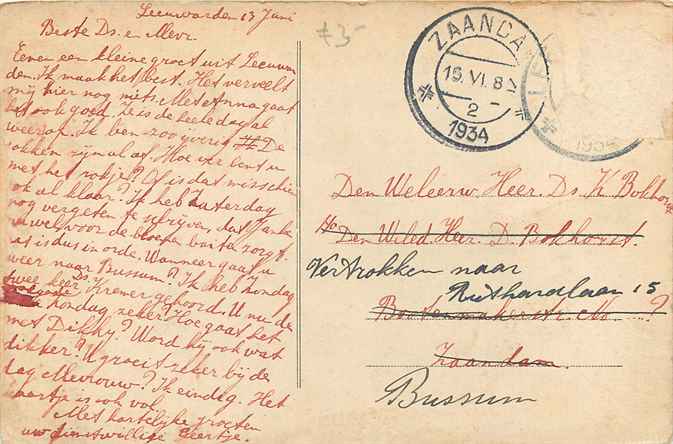 Leeuwarden 13 Juni
Beste Ds. en Mevr.
Eenen een kleine groet uit Leeuwar
den. Ik maak het best. Het verveelt
mij hier nog niets. Met Anna gaat
het ook goed, ze is de heele dag al
weer op. Ik ben zoo ijverig De
rokken zijn al af. Hoe ver bent u
met het rokje? Of is dat misschien
ook al klaar? Ik heb Zaterdag
nog vergeten te schrijven, dat Janke
wel voor de bloemen zorgt.
is dus in orde. Wanneer gaat u
weer naar Bussum? Ik heb Zondag
twee keer Ds Kremer gehoord. U nu de
Zondag zeker? Hoe gaat het
met Dikky? Word hij ook wat
dikker? U groeit zeker bij de
dag Mevrouw? Ik eindig. Het
kaartje is ook vol
Met hartelijke groeten
uw dienstwillige Geertje.
+3-
ZAANDA
15.VI.8
2
1934
1934
Den Weleerw. Heer. Ds. K Bokhorst
Den Wled. Heer. D. Bokhorst.
Vertrokken naar
Ruthardlaan 15
Bootenmakerstr. No. ...?
Zaandam.
Bussum